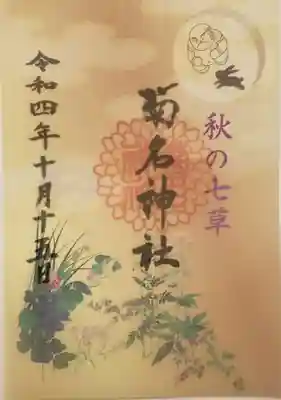 秋の七草
菊名神社
令和四年十月十五日